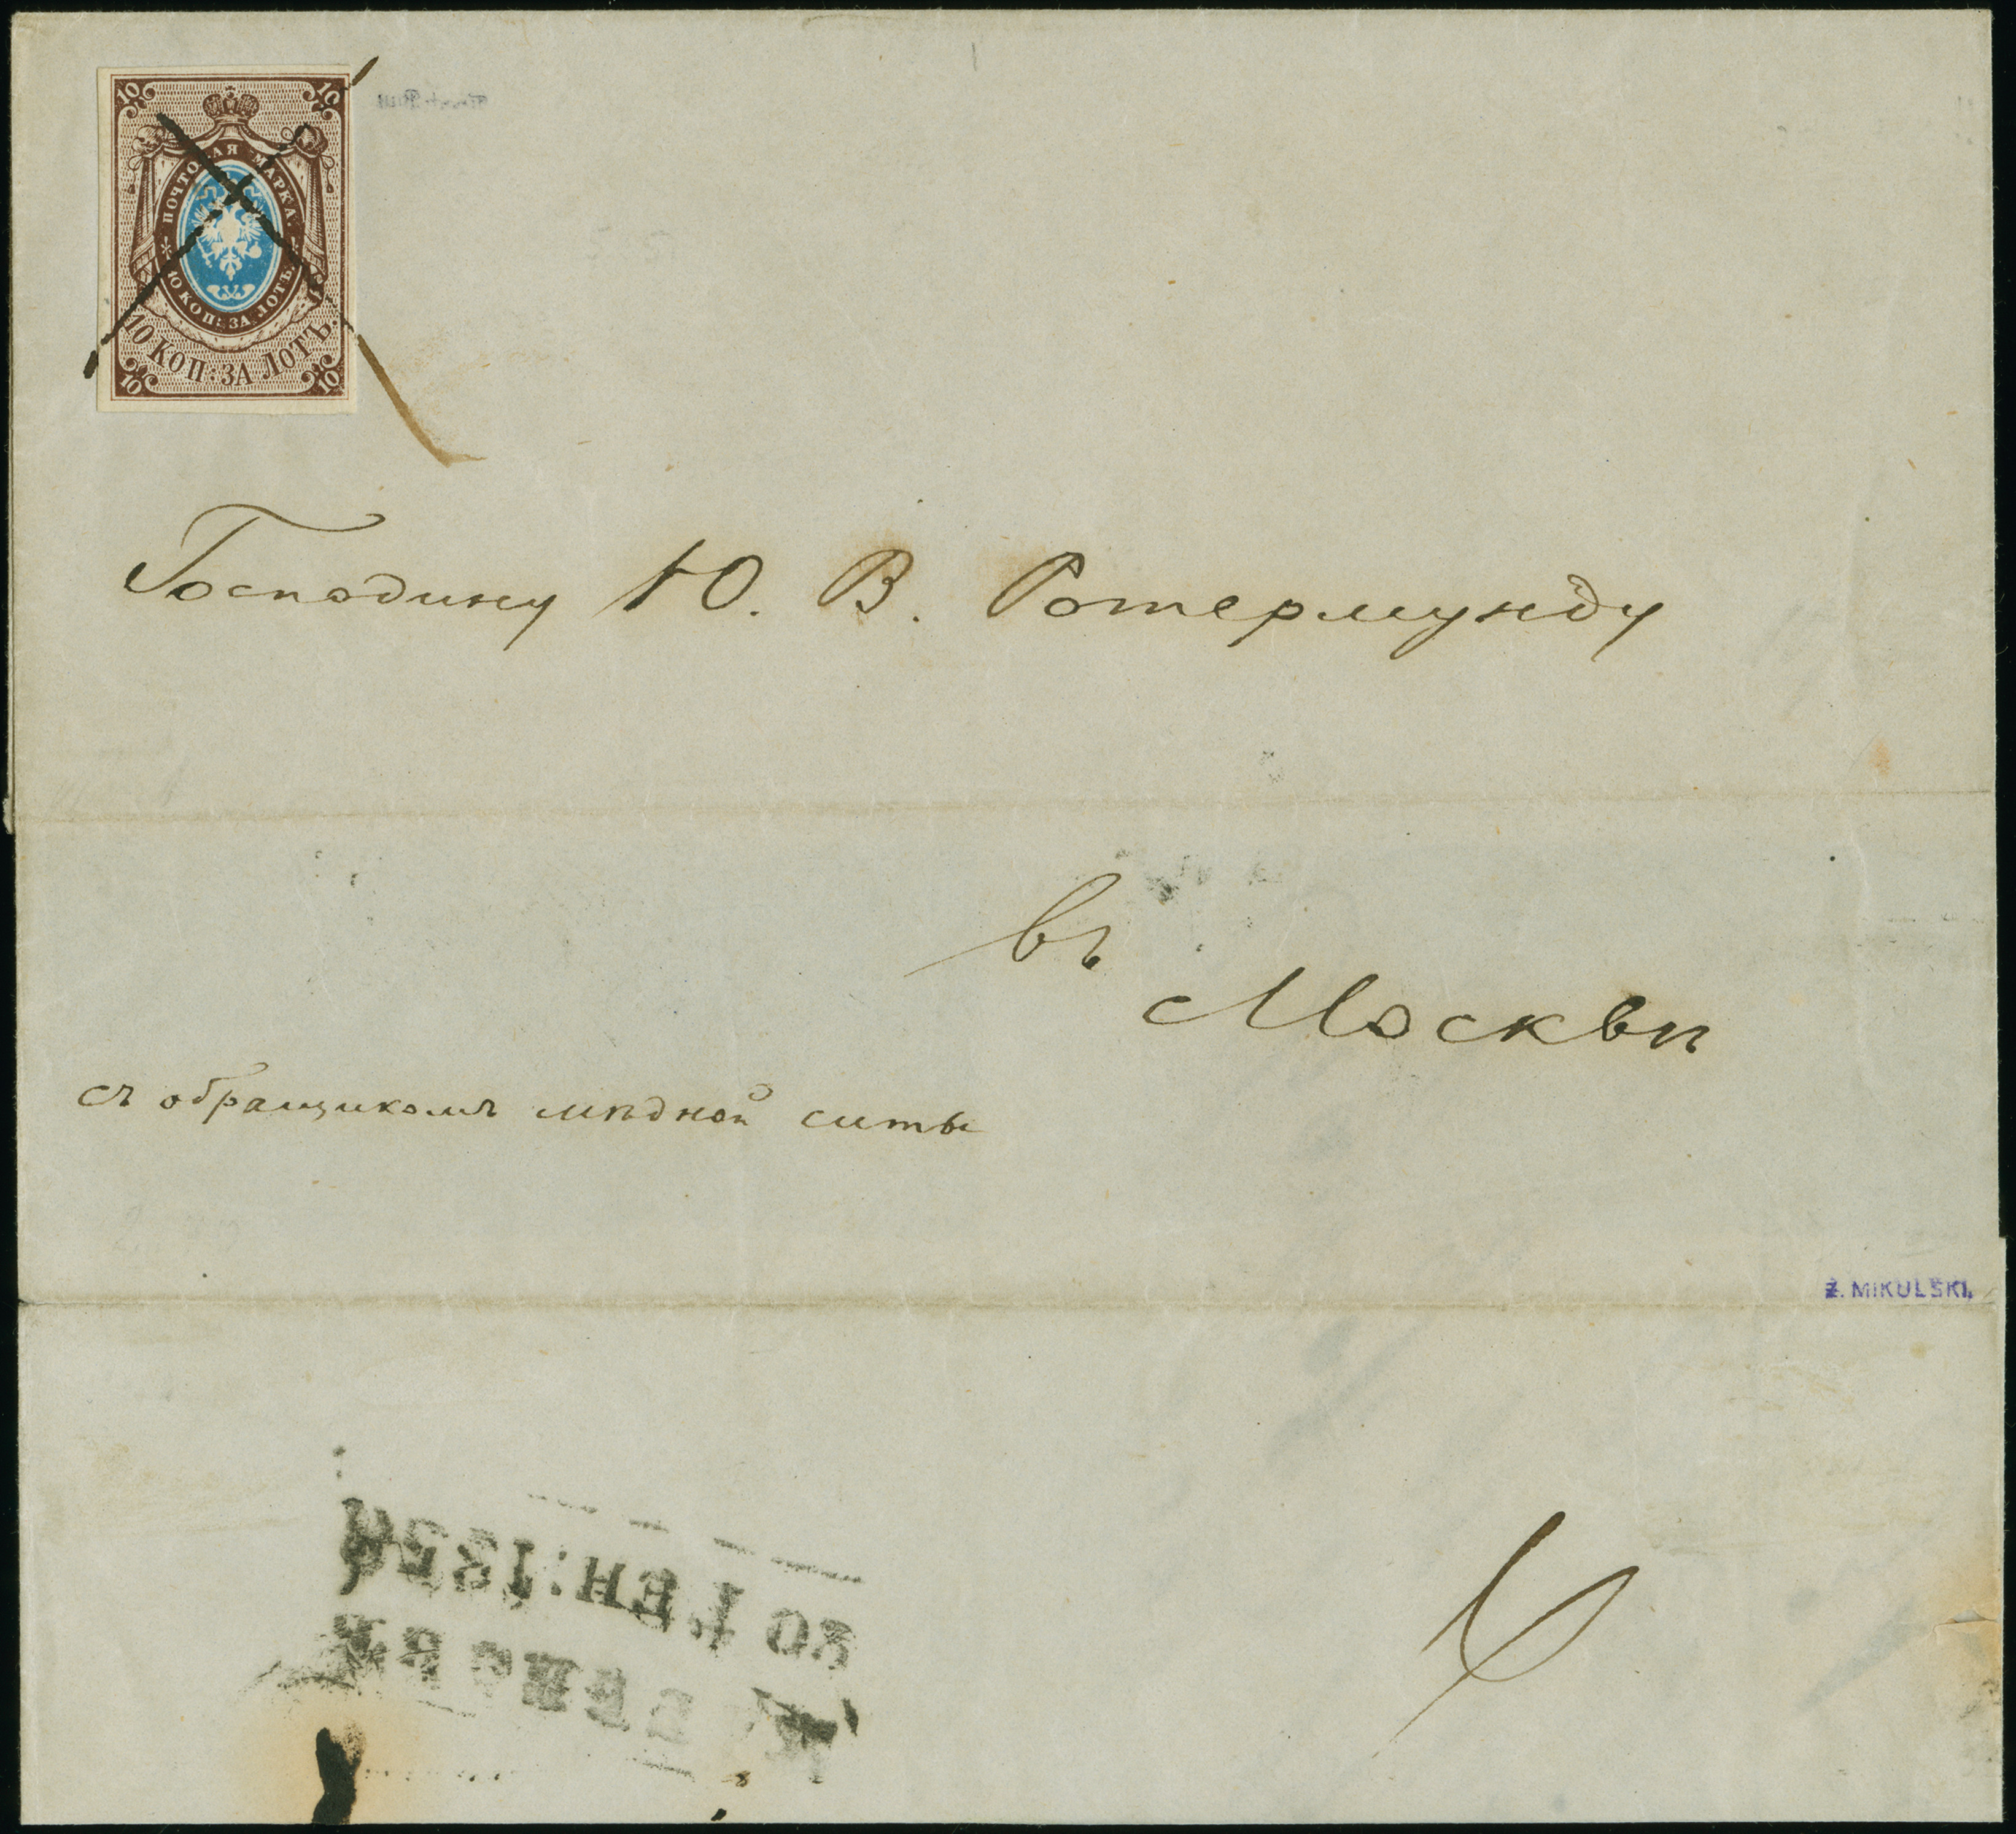 10 10
ПОЧТОВАЯ МАРКА.
10 КОП: ЗА ЛОТЪ.
10 КОП: ЗА ЛОТЪ.
10 10
Господину Ю. В. Ротермунду
въ
Москвѣ
съ обращикомъ мѣдной ситы
Z. MIKULSKI.
20 ГЕН: 185